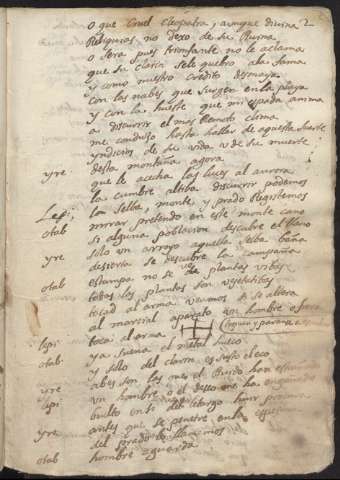 O que Cruel Cleopatra, aunque divina 2
Reliquias no dexo de su Ruina
O sera pues trionfante no le aclama
que su clarin se le quebro a la fama
y como nuestro credito desmaya
con las nabes que surgen en la playa
y con la hueste que mi espada anima
a discurrir el mas Remoto clima
me condujo hasta hallar de aquesta suerte
yndicios de su vida u de su muerte
desta montaña agora
yre. que le acecha las luces al aurora
la cumbre altiba discurrir podemos
Lepi. la selba, monte, y prado Registemos
otab mirar pretendo en este monte cano
si alguna poblacion descubre el llano
yre solo un arroyo aquella selba baña
desierta se descubre la campaña
otab estampa no se ve de plantas vibas
todas las plantas son vejetatibas
tocad al arma veamos si se altera
al marcial aparato un hombre o fiera
lepi toca al arma
otab ya suena el metal hueco
y sillo del clarin es susto el eco
yre
lepi un hombre o el deseo me ha engañado
bulto
yre antes que se penetre en la
del prado le llamemos
otab hombre aguarda